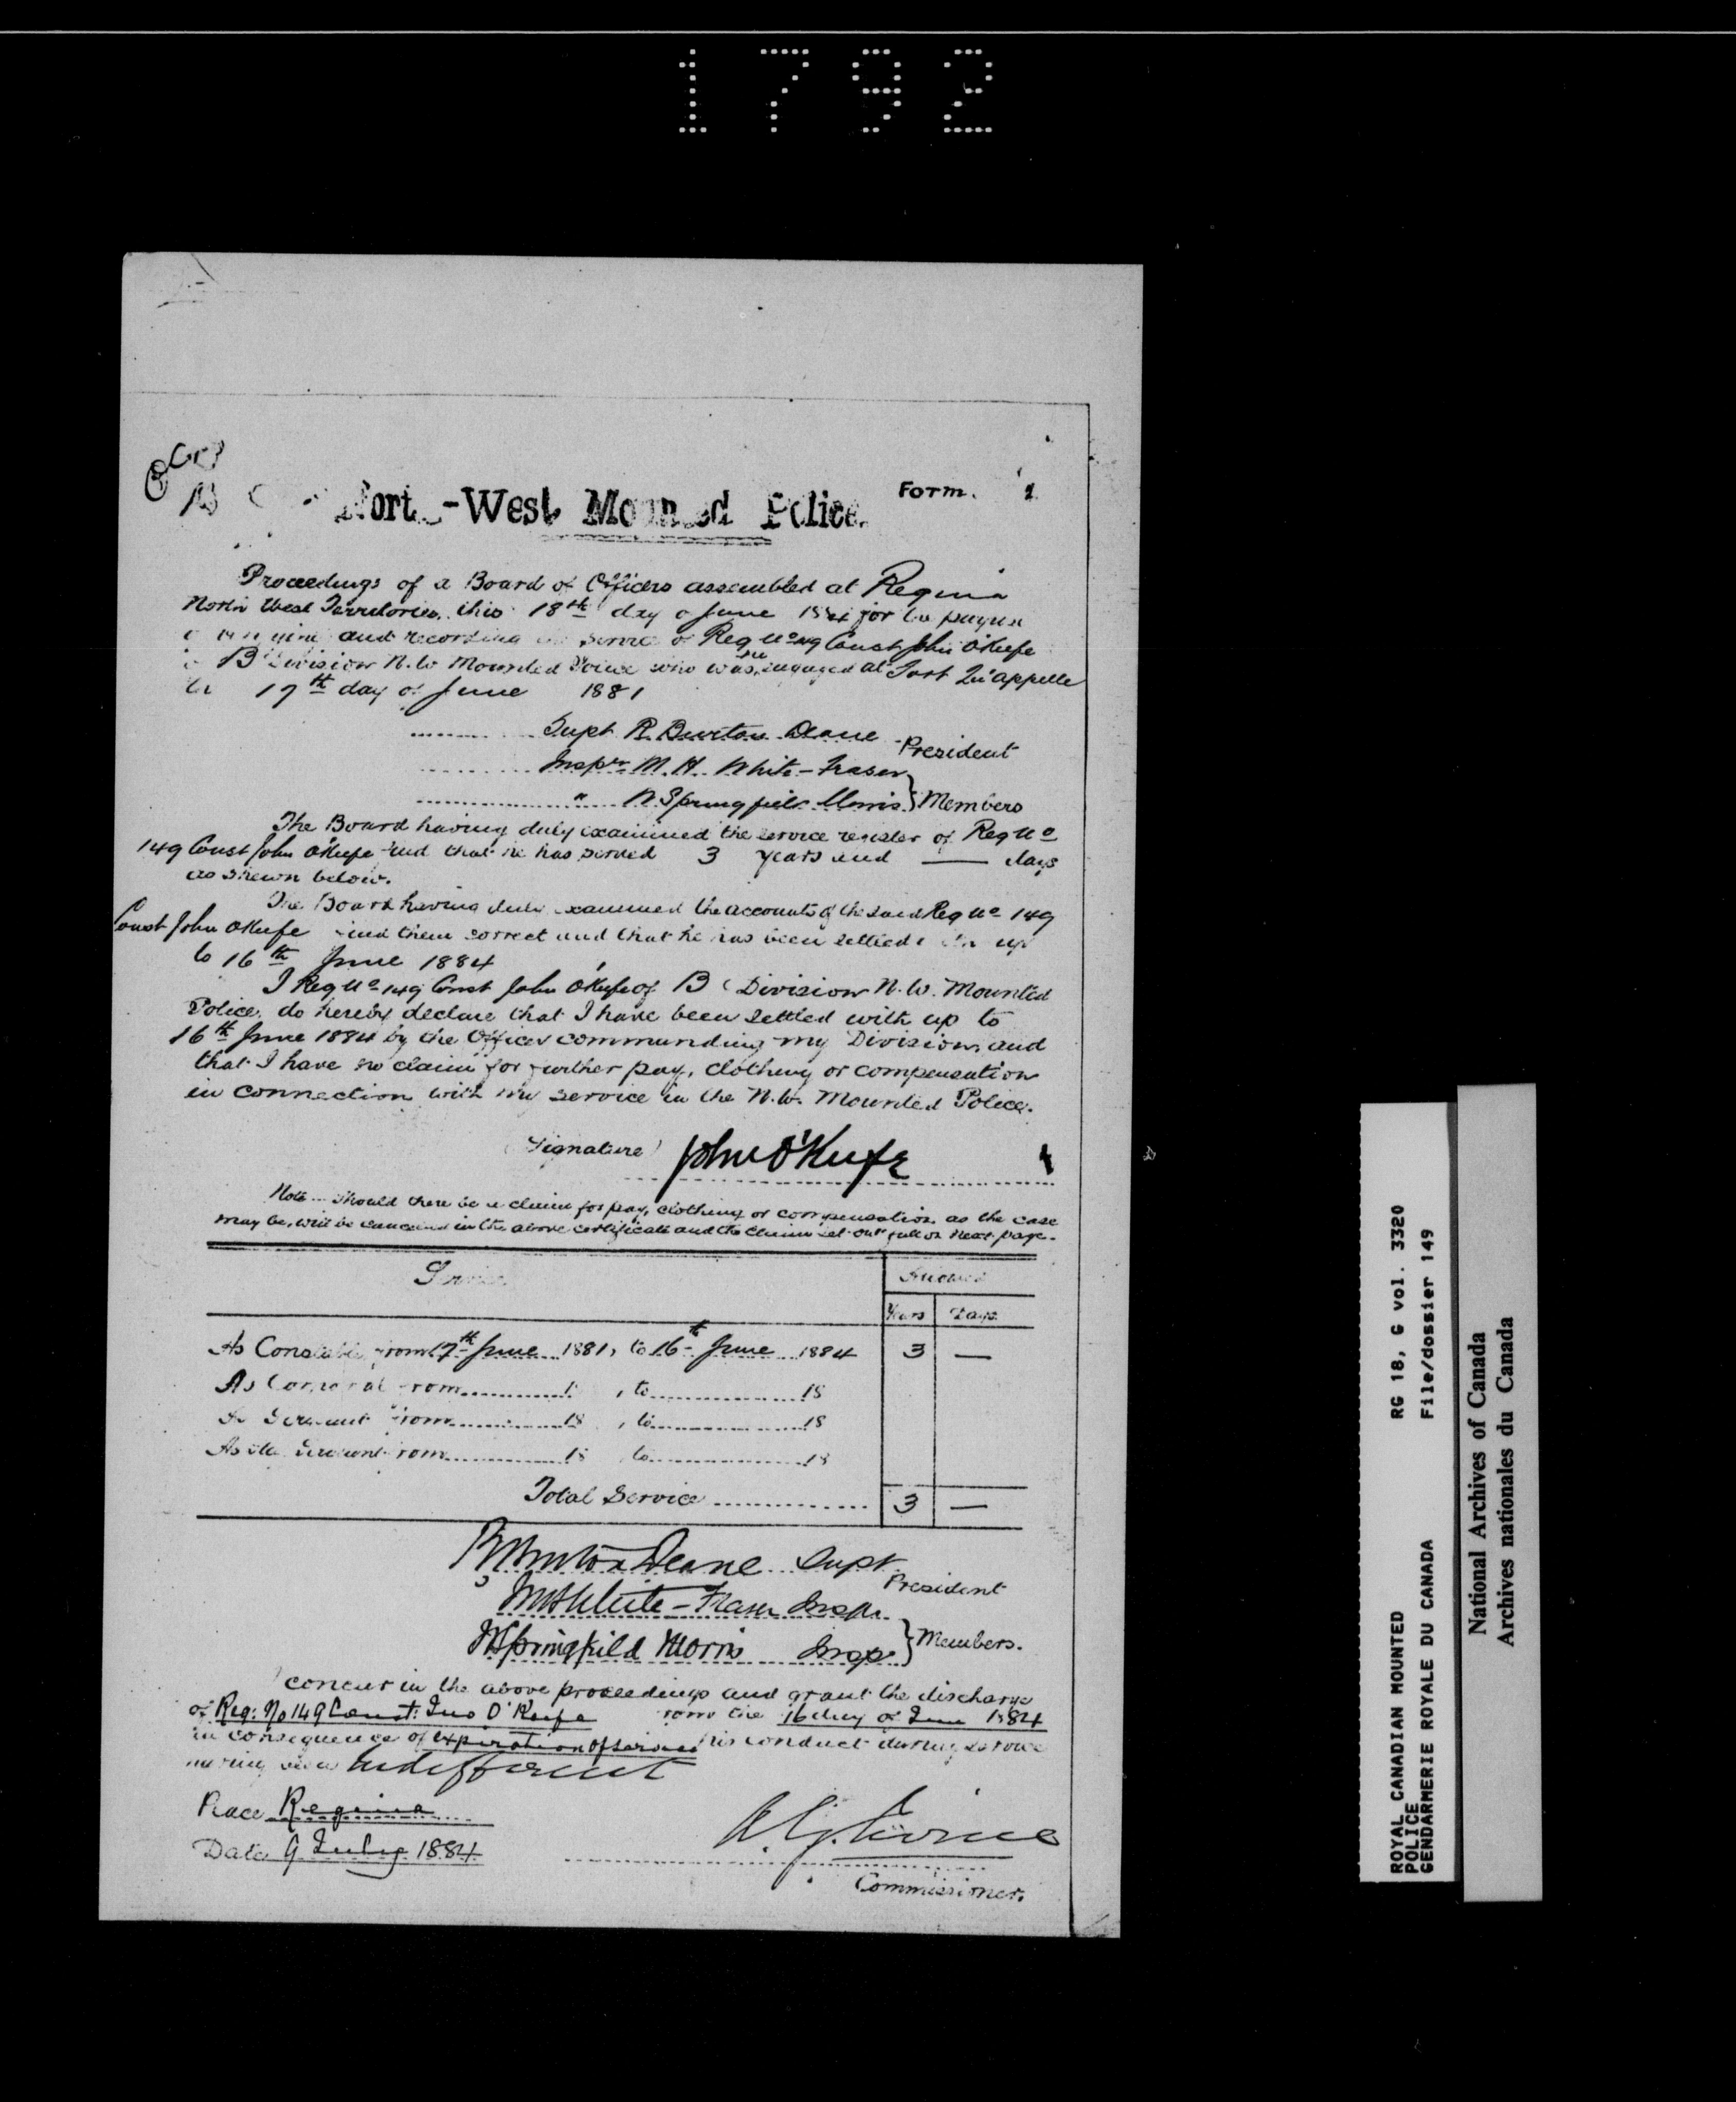 1792
Form. 1
North-West Mounted Police.
Proceedings of a Board of Officers assembled at Regina
North West Territories, this 18th day of June 1884 for the purpose
of and recording the service of Reg No 149 Const John O'Keefe
of B Division N.W Mounted Police who was re engaged at Fort Qu'appelle
the 17th day of June 1881
Supt R Burton Deane President
Inspr M. H. White-Fraser
" W Springfield Morris } Members
The Board having duly examined the service register of Reg No
149 Const John O'Keefe find that he has served 3 years and — days
as shewn below.
The Board having duly examined the accounts of the said Reg No 149
Const John O'Keefe find them correct and that he has been settled with up
to 16th June 1884
I Reg No 149 Const John O'Keefe of B Division N.W. Mounted
Police, do hereby declare that I have been settled with up to
16th June 1884 by the Officer commanding my Division, and
that I have no claim for further pay, clothing or compensation
in connection with my service in the N.W. Mounted Police.
(Signature) John O'Keefe
Note - Should there be a claim for pay, clothing or compensation, as the case
may be, will be in the above certificate and the claim set out full on next page.
Service Allowed
Years Days
As Constable from 17th June 1881, to 16th June 1884 3 —
As Corporal from 18 , to 18
As Sergeant from 18 , to 18
As Sergeant from 18 to 18
Total Service 3 —
R Burton Deane Supt President
M H White-Fraser Inspr
W Springfield Morris Insp } Members.
I concur in the above proceedings and grant the discharge
of Reg: No 149 Const: Jno O'Keefe from the 16 day of June 1884
in consequence of expiration of service his conduct during service
having been Indifferent
Place Regina
Date 9 July 1884
A. G. Irvine
Commissioner.
ROYAL CANADIAN MOUNTED RG 18, G vol. 3320
POLICE
GENDARMERIE ROYALE DU CANADA File/dossier 149
National Archives of Canada
Archives nationales du Canada